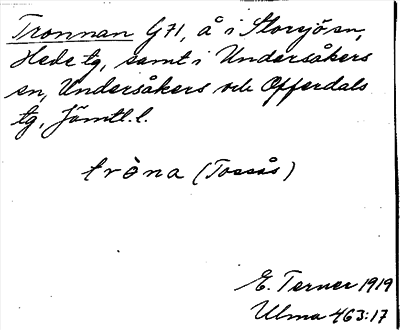 Tronnan G71, å i Storsjö sn,
Hede tg, samt i Undersåkers
sn, Undersåkers och Offerdals
tg, Jämtl. l.
tròna (Tossås)
E. Terner 1919
Ulma 463:17